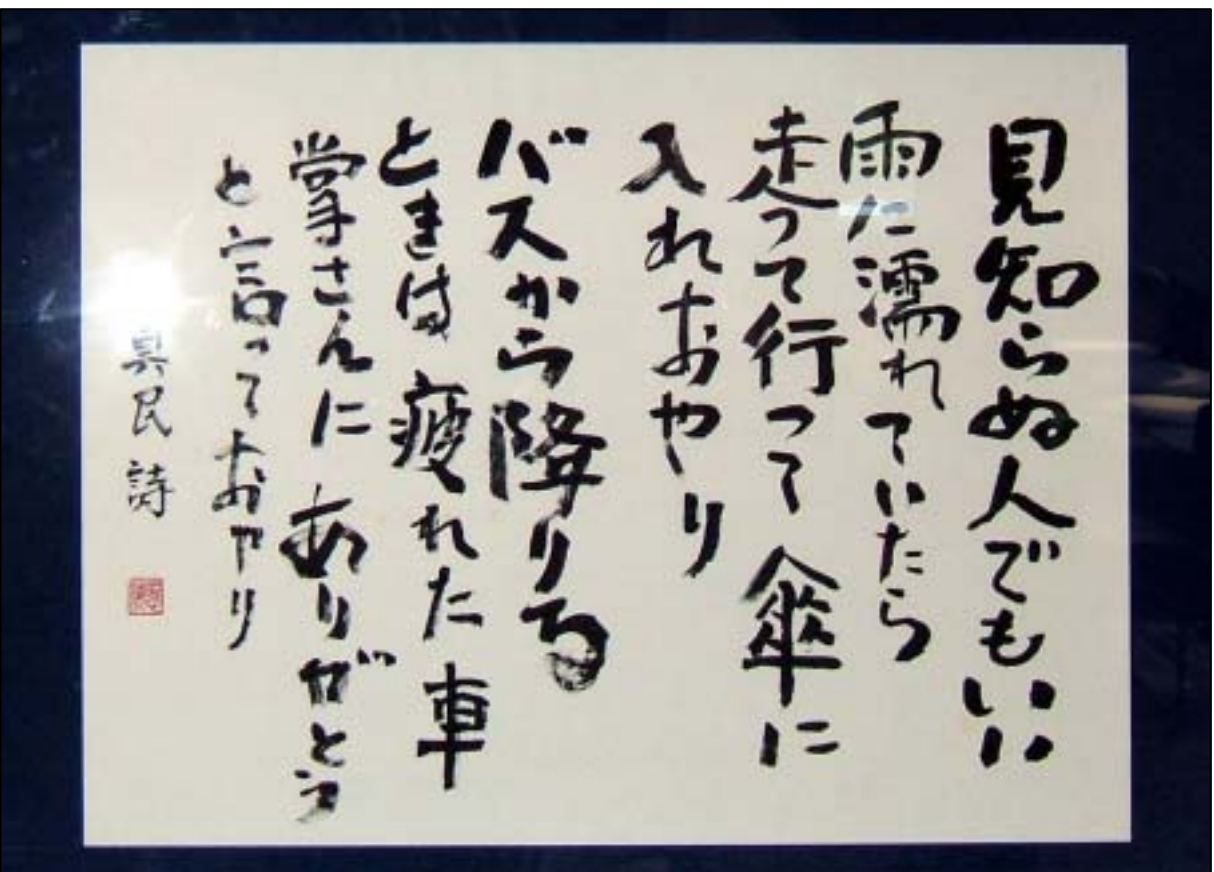 見知らぬ人でもいい
雨に濡れていたら
走って行って傘に
入れおやり
バスから降りる
ときは疲れた車
掌さんにありがとう
と言っておやり
真民詩